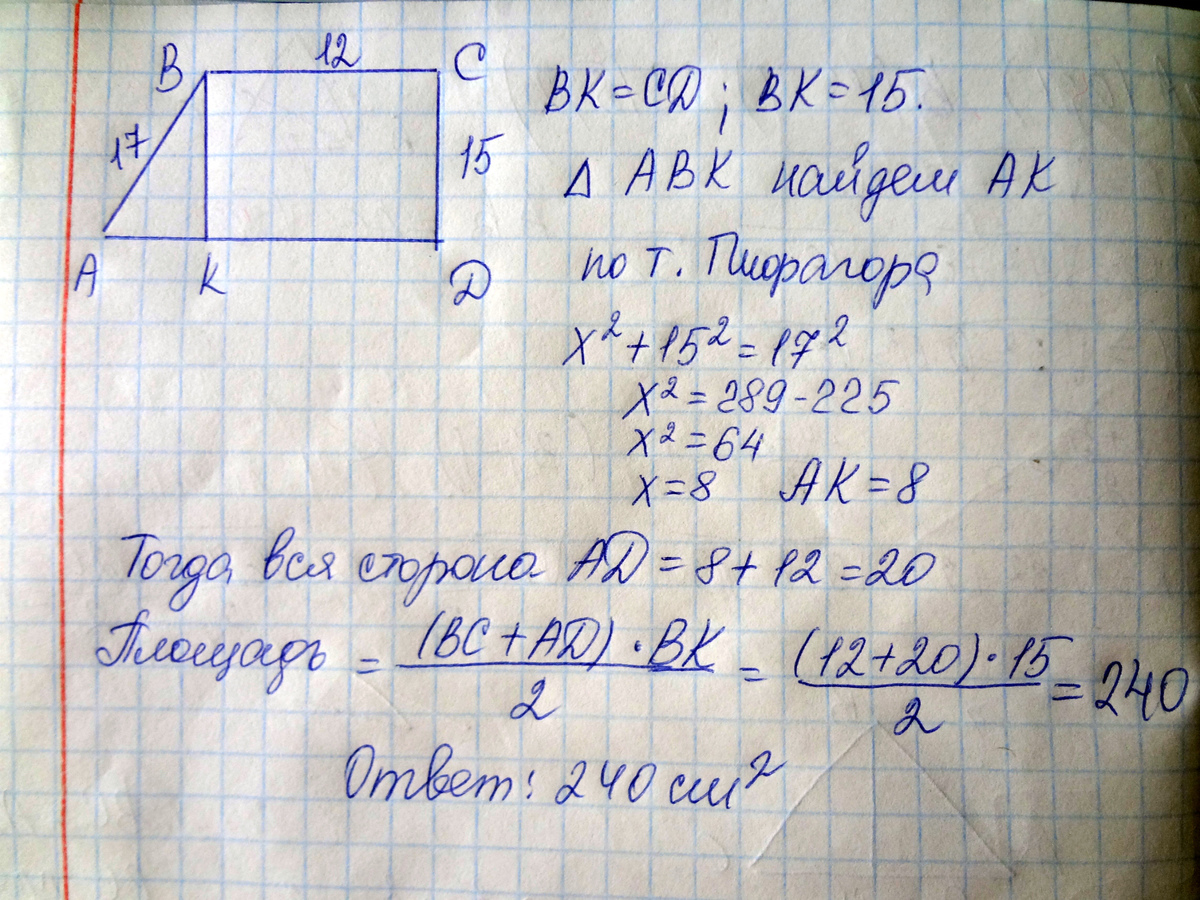 12
B C
17 15
A K D
BK = CD ; BK = 15.
Δ ABK найдем AK
по т. Пифагора
x² + 15² = 17²
x² = 289 - 225
x² = 64
x = 8 AK = 8
Тогда вся сторона AD = 8 + 12 = 20
Площадь = (BC + AD) · BK / 2 = (12 + 20) · 15 / 2 = 240
Ответ: 240 см²